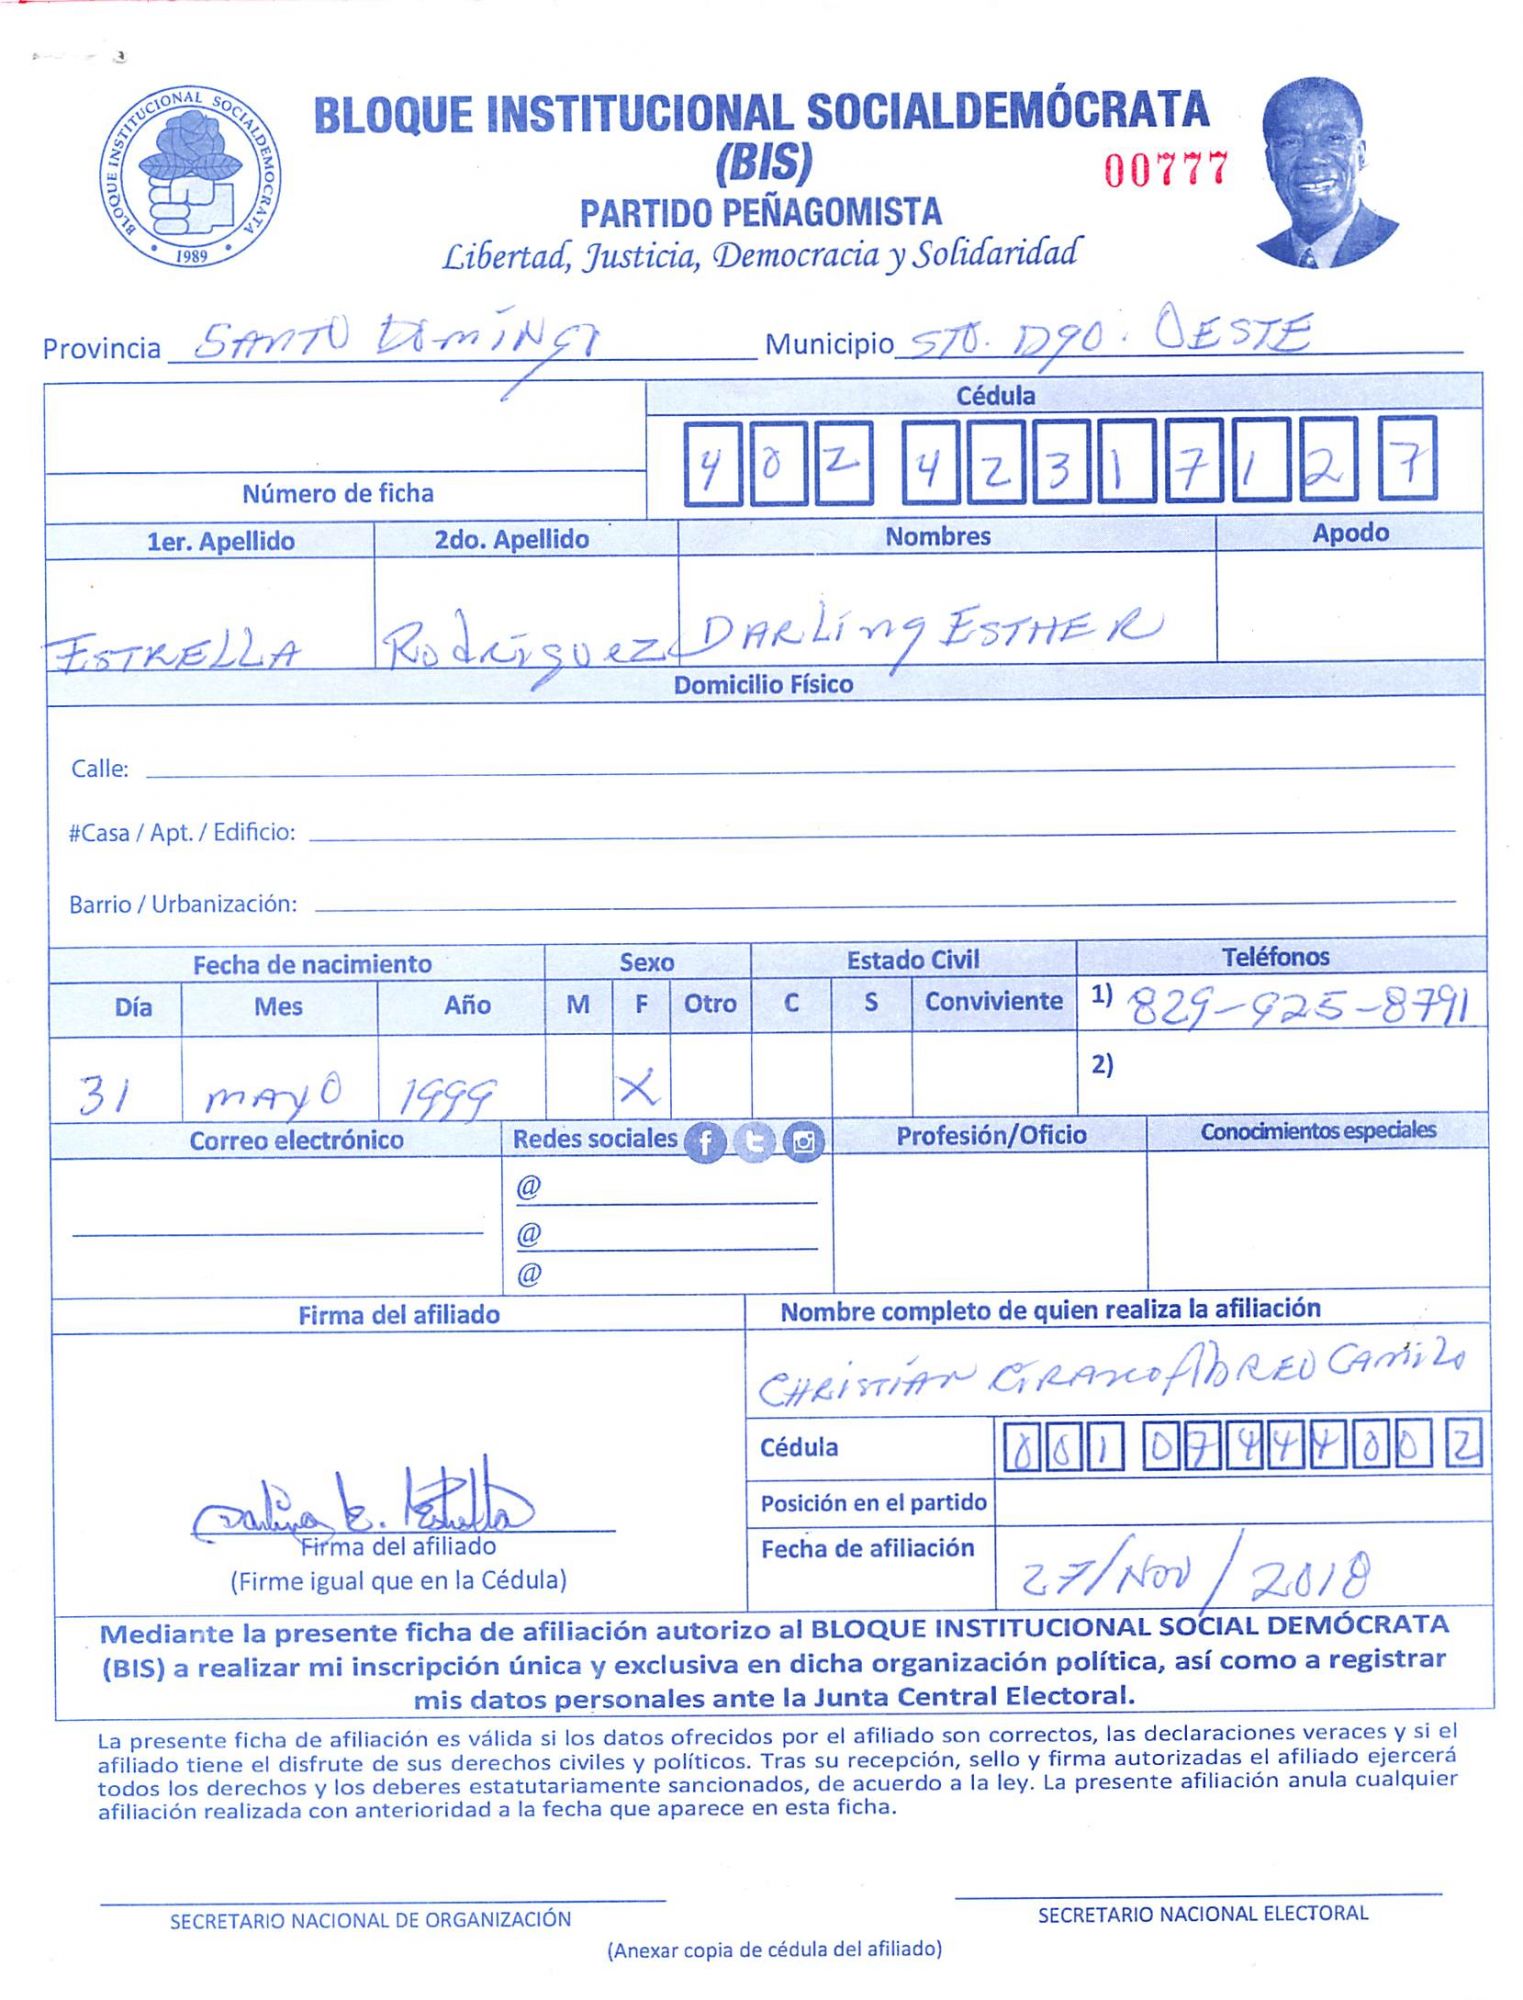 BLOQUE INSTITUCIONAL SOCIALDEMÓCRATA
BLOQUE INSTITUCIONAL SOCIALDEMÓCRATA
(BIS)
00777
PARTIDO PEÑAGOMISTA
1989
Libertad, Justicia, Democracia y Solidaridad
Provincia SANTO DOMINGO Municipio STO. DGO. OESTE
Cédula
402 4231712 7
Número de ficha
1er. Apellido 2do. Apellido Nombres Apodo
ESTRELLA Rodríguez DARLing ESTHER
Domicilio Físico
Calle:
#Casa / Apt. / Edificio:
Barrio / Urbanización:
Fecha de nacimiento Sexo Estado Civil Teléfonos
Día Mes Año M F Otro C S Conviviente 1) 829-925-8791
31 MAYO 1999 X 2)
Correo electrónico Redes sociales Profesión/Oficio Conocimientos especiales
@
@
@
Firma del afiliado Nombre completo de quien realiza la afiliación
CHRISTIAN ABREO CAMILO
Cédula 001 0744400 2
Posición en el partido
Firma del afiliado
Fecha de afiliación 27/NOV/2018
(Firme igual que en la Cédula)
Mediante la presente ficha de afiliación autorizo al BLOQUE INSTITUCIONAL SOCIAL DEMÓCRATA
(BIS) a realizar mi inscripción única y exclusiva en dicha organización política, así como a registrar
mis datos personales ante la Junta Central Electoral.
La presente ficha de afiliación es válida si los datos ofrecidos por el afiliado son correctos, las declaraciones veraces y si el
afiliado tiene el disfrute de sus derechos civiles y políticos. Tras su recepción, sello y firma autorizadas el afiliado ejercerá
todos los derechos y los deberes estatutariamente sancionados, de acuerdo a la ley. La presente afiliación anula cualquier
afiliación realizada con anterioridad a la fecha que aparece en esta ficha.
SECRETARIO NACIONAL DE ORGANIZACIÓN SECRETARIO NACIONAL ELECTORAL
(Anexar copia de cédula del afiliado)